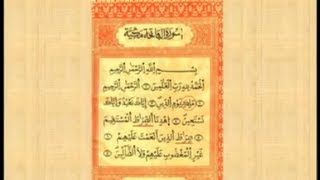 سورة الفاتحة مكية
بسم الله الرحمن الرحيم
الحمد لله رب العلمين الرحمن الرحيم
ملك يوم الدين إياك نعبد وإياك
نستعين اهدنا الصراط المستقيم
صراط الذين أنعمت عليهم
غير المغضوب عليهم ولا الضالين